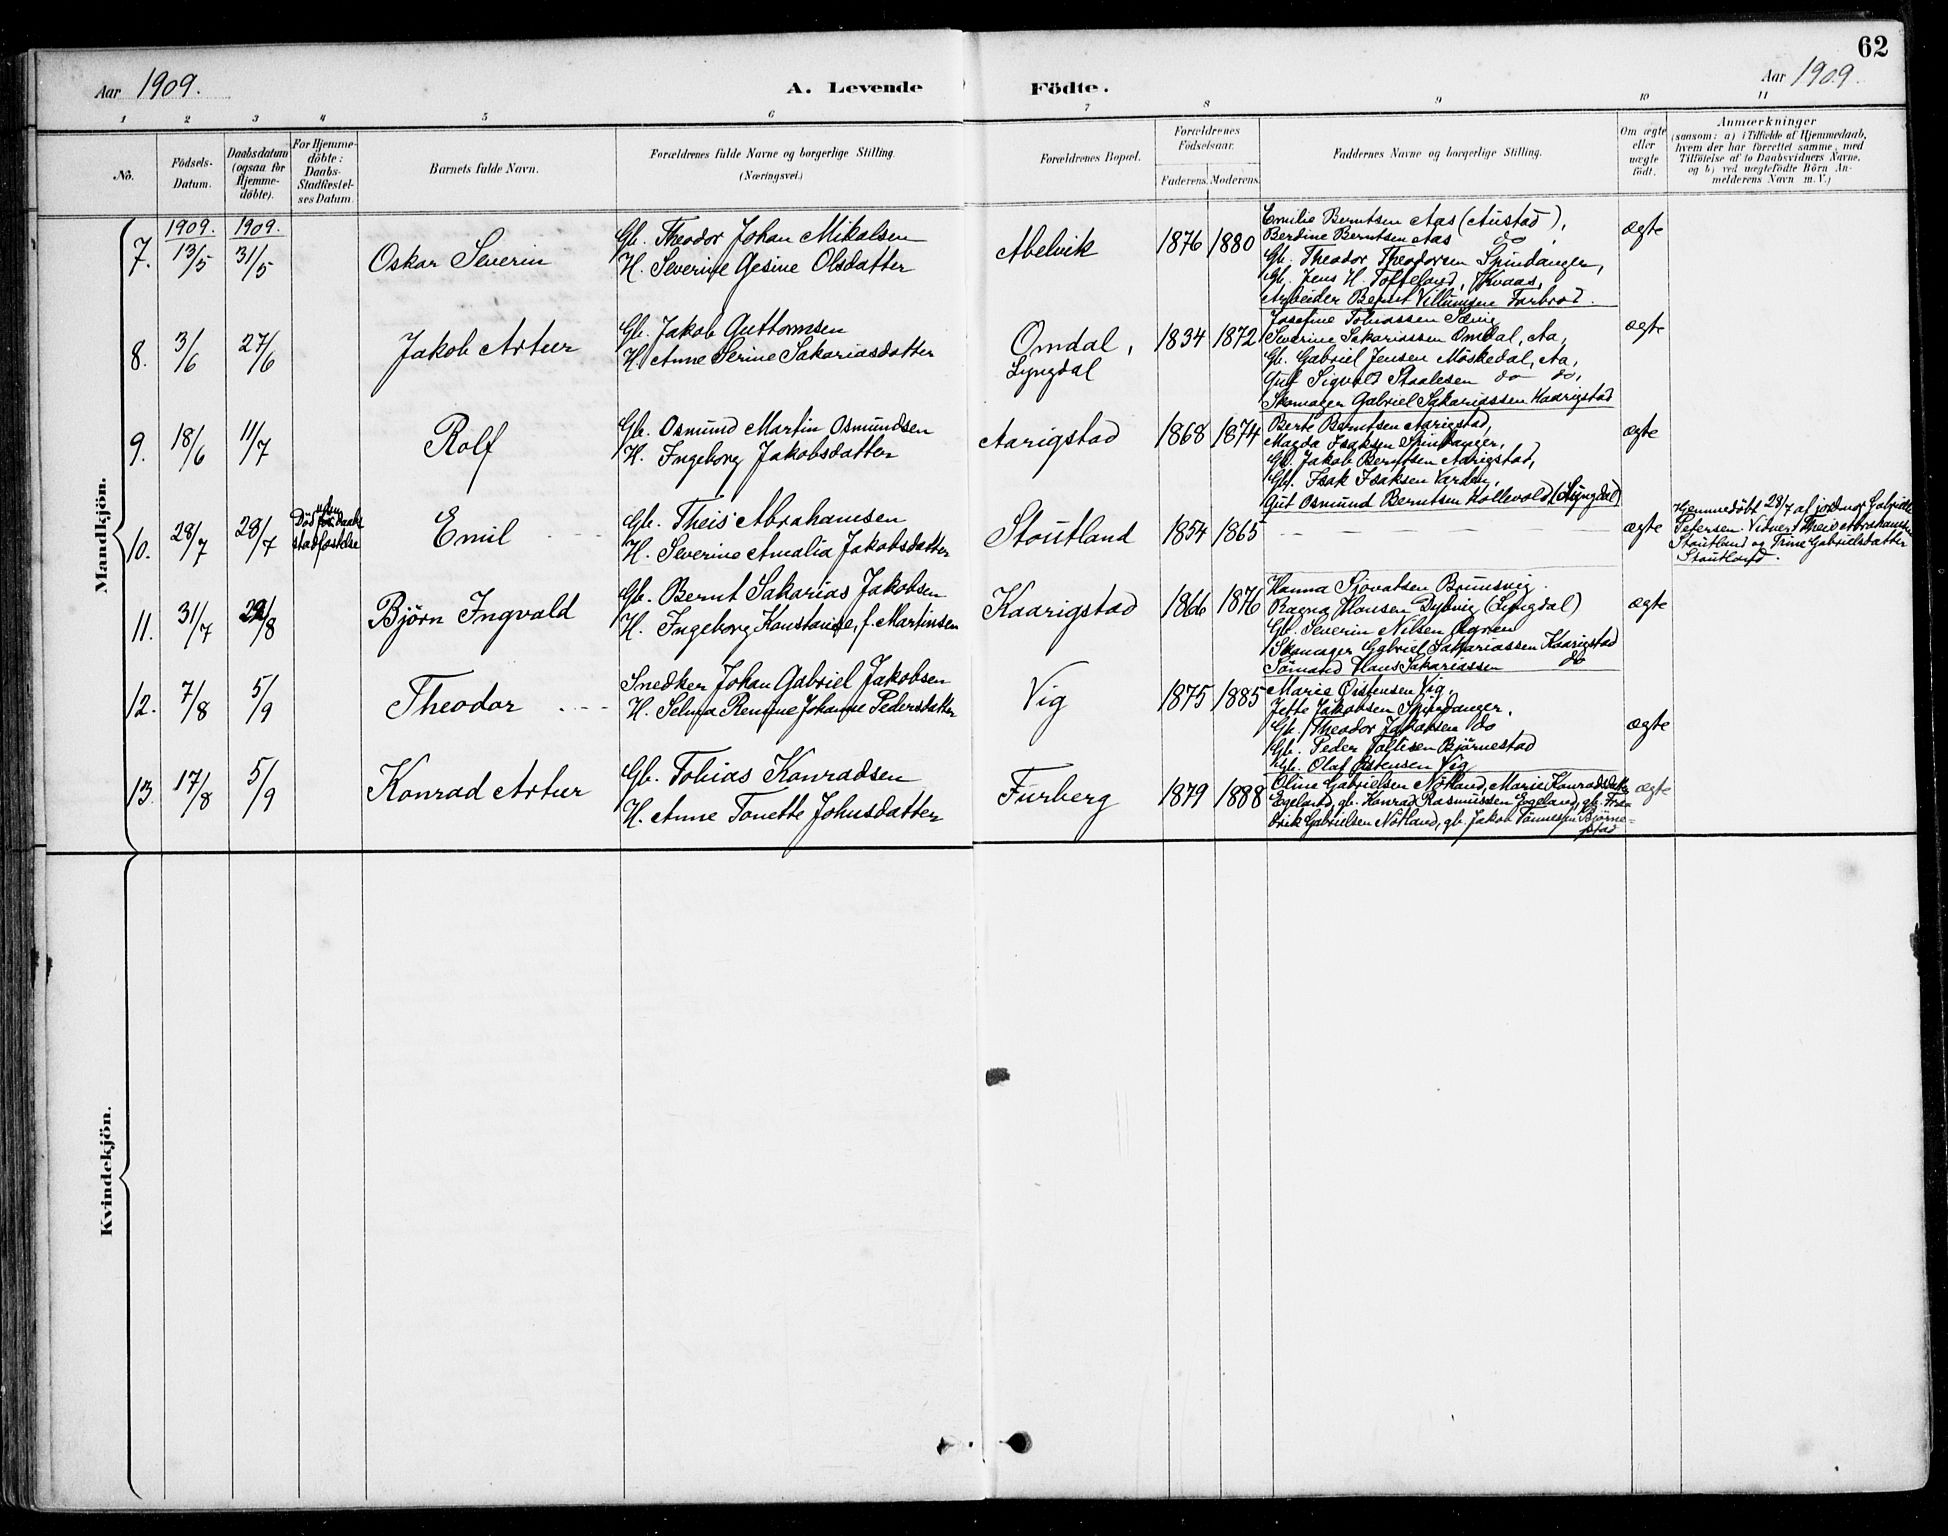 62
Aar 1909.
A. Levende Födte.
Aar 1909.
1 2 3 4 5 6 7 8 9 10 11
No.
Födsels-Datum.
Daabsdatum (ogsaa for Hjemme-döbte).
For Hjemme-döbte: Daabs-Stadfæstel-ses Datum.
Barnets fulde Navn.
Forældrenes fulde Navne og borgerlige Stilling.
(Næringsvei.)
Forældrenes Bopæl.
Forældrenes Födselsaar.
Faderens. Moderens.
Faddernes Navne og borgerlige Stilling.
Om ægte eller uægte födt.
Anmærkninger
(saasom: a) i Tilfælde af Hjemmedaab,
hvem der har forrettet samme, med
Tilföielse af to Daabsvidners Navne,
og b) ved uægtefödte Börn An-
melderens Navn m. V.)
Mandkjön.
1909. 1909.
7. 13/5 31/5 Oskar Severin
Gb. Theodor Johan Mikalsen
H. Severine Gesine Olsdatter
Abelvik 1876 1880
Emilie Berntsen Aas (Austad),
Berdine Berntsen Aas do,
Gb. Theodor Theodorsen Spindanger,
Gb. Jens H. Tofteland, Kvaas,
Arbeider Bernt Villumsen Farbrod.
ægte
8. 3/6 27/6 Jakob Artur
Gb. Jakob Guttormsen
H. Anne Serine Sakariasdatter
Omdal,
Lyngdal
1834 1872
Josefine Tobiassen
Severine Sakariassen Omdal, Aa,
Gb. Gabriel Jensen Möskedal, Aa,
Gut Sigvald Staalesen do do,
Skomager Gabriel Sakariassen Kaarigstad
ægte
9. 18/6 11/7 Rolf
Gb. Osmund Martin Osmundsen
H. Ingeborg Jakobsdatter
Aarigstad 1868 1874
Berte Berntsen Aarigstad,
Magda Isaksen Spindanger,
Gb. Jakob Berntsen Aarigstad,
Gb. Isak Isaksen Varden,
Gut Osmund Berntsen Hollevold (Lyngdal)
ægte
10. 28/7 28/7
Död uden daabs
stadfæstelse
Emil
Gb. Theis Abrahamsen
H. Severine Amalia Jakobsdatter
Stoutland 1854 1865
ægte
Hjemmedöbt 28/7 af jordmor Gabrielle
Petersen. Vidner: Theis Abrahamsen
Stoutland og Trine Gabrielsdatter
Stoutland.
11. 31/7 22/8 Björn Ingvald
Gb. Bernt Sakarias Jakobsen
H. Ingeborg Konstanse, f. Martinsen
Kaarigstad 1866 1876
Hanna Sjovatsen Brunsvig
Ragna Hansen Dybvig (Lyngdal)
Gb. Severin Nilsen Ögren
Skomager Gabriel Sakariassen Kaarigstad
Sömand Hans Sakariassen do
ægte
12. 7/8 5/9 Theodor
Snedker Johan Gabriel Jakobsen
H. Selma Rensine Johanne Pedersdatter
Vig 1875 1885
Marie Östensen Vig,
Jette Jakobsen Spindanger,
Gb. Theodor Jakobsen do
Gb. Peder Tollisen Björnestad
Gb. Olaf Östensen Vig
ægte
13. 17/8 5/9 Konrad Artur
Gb. Tobias Konradsen
H. Anne Tonette Johnsdatter
Furberg 1879 1888
Oline Gabrielsen Nötland, Marie Konradsdtr
Egeland, gb. Konrad Rasmussen Egeland, gb. Fre-
drik Gabrielsen Nötland, gb. Jakob Tönnesen Björne-
stad
ægte
Kvindekjön.